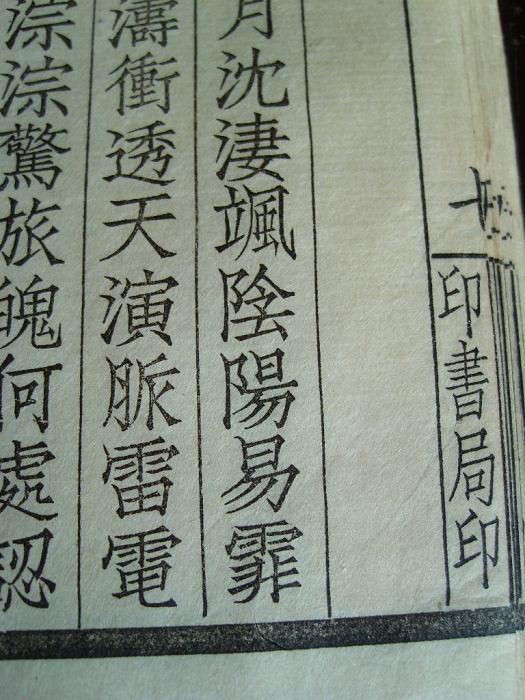 印書局印
月沈淒颯陰陽易霏
濤衝透天演脈雷電
淙淙驚旅魄何處認